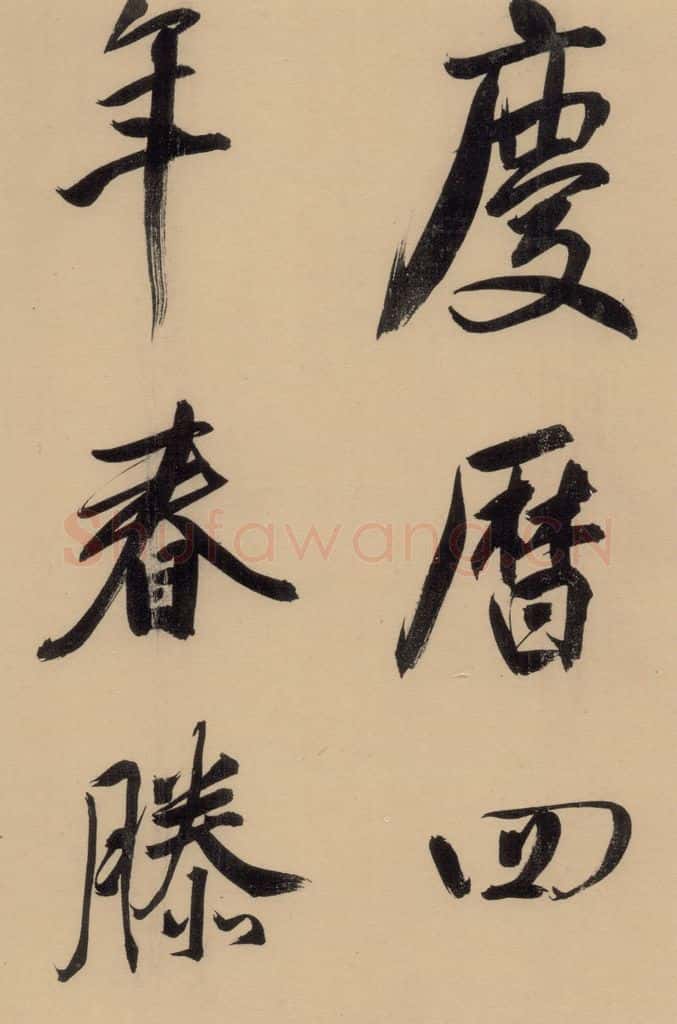 慶曆四
年春滕
Shufawang.CN